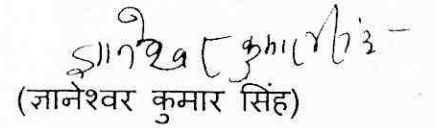 ज्ञानेश्वर कुमार सिंह
(ज्ञानेश्वर कुमार सिंह)